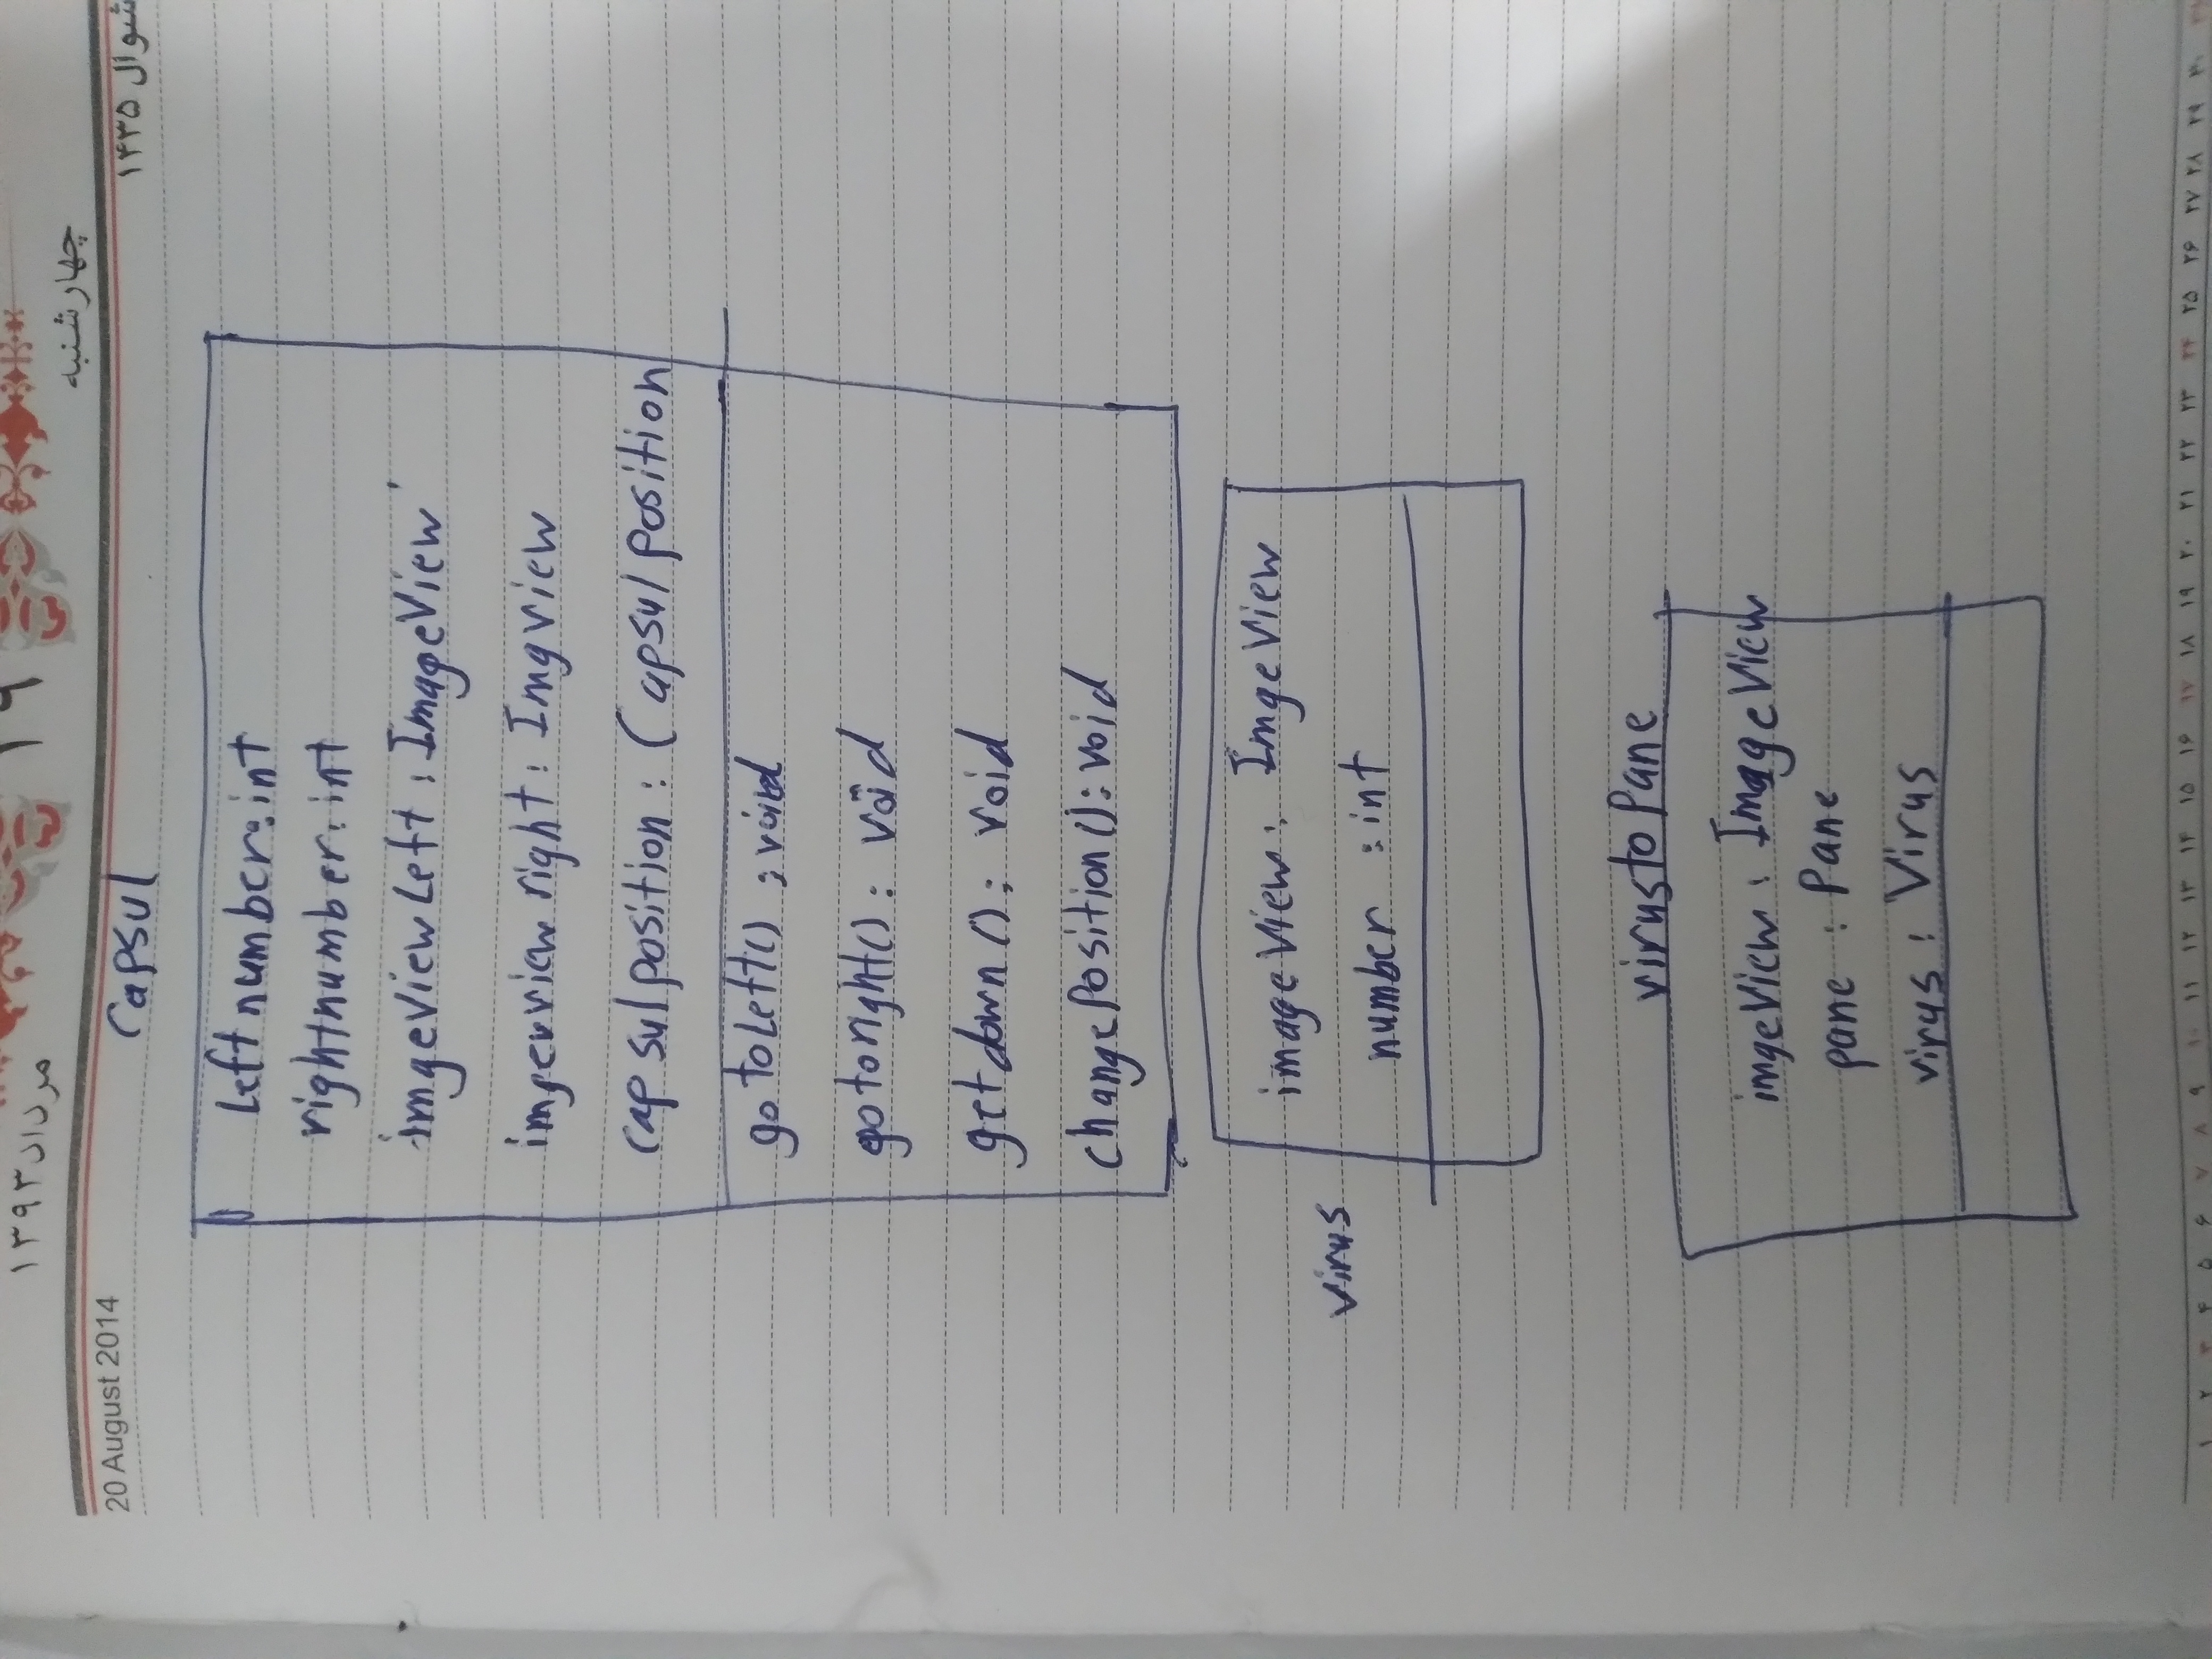 مرداد ۱۳۹۳
۲۹
چهارشنبه
20 August 2014
شوال ۱۴۳۵
Capsul
Left number: int
rightnumber: int
imgeViewLeft : ImageView
imgeuview right: Imgview
capsulposition : Capsulposition
gotoLeft() ; void
gotoright() : void
getdown (); void
changePosition (): void
imageView: ImgeView
virus
number : int
virustoPane
imgeView : ImageView
pane : Pane
virus : Virus
۱ ۲ ۳ ۴ ۵ ۶ ۷ ۸ ۹ ۱۰ ۱۱ ۱۲ ۱۳ ۱۴ ۱۵ ۱۶ ۱۷ ۱۸ ۱۹ ۲۰ ۲۱ ۲۲ ۲۳ ۲۴ ۲۵ ۲۶ ۲۷ ۲۸ ۲۹ ۳۰ ۳۱